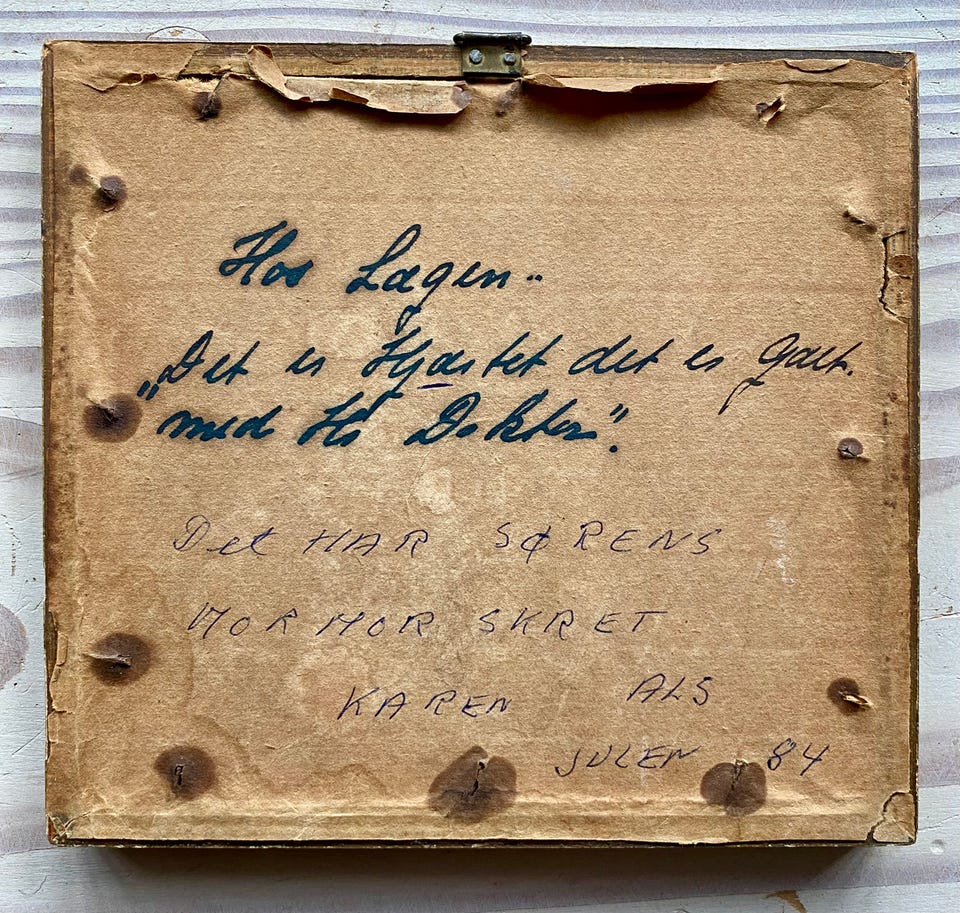 Hos Lægen..
„Det er Hjærtet det er galt.
med Hr Doktor".
Det HAR SØRENS
MORMOR SKRET
KAREN ALS
JULEN 84